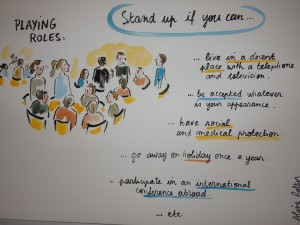 PLAYING
ROLES:
Stand up if you can...
... live in a decent
place with a telephone
and television.
... be accepted whatever
is your appearance.
... have social
and medical protection.
... go away on holiday once a year.
... participate in an international
conference abroad
... etc